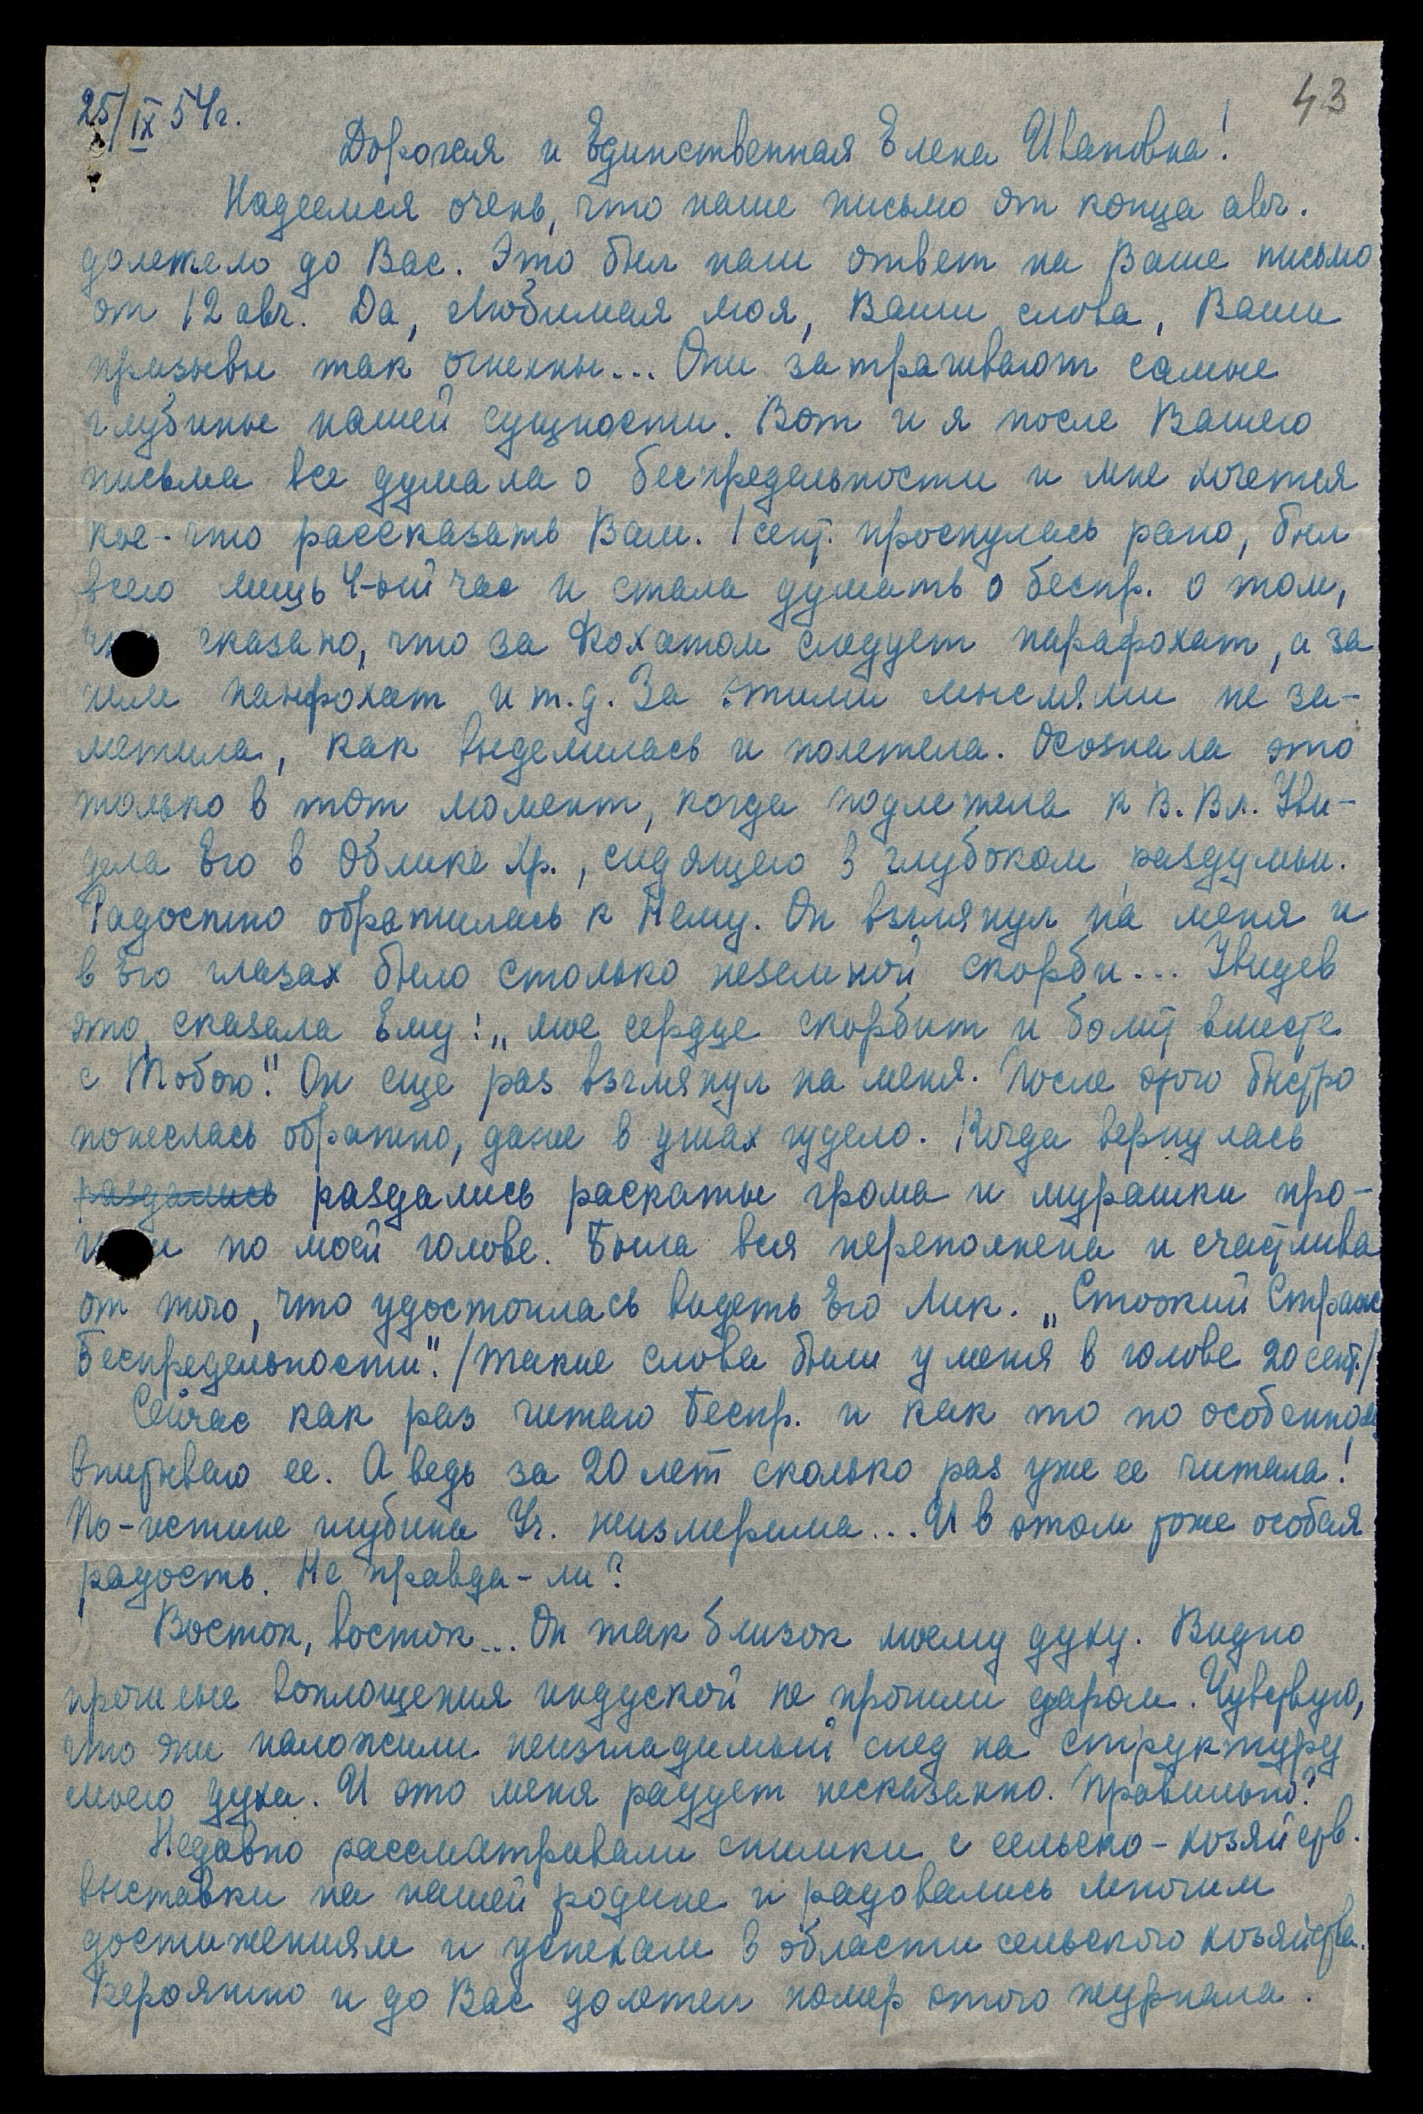 43
25/IX 54г.
Дорогая и Единственная Елена Ивановна!
Надеемся очень, что наше письмо от конца авг.
долетело до Вас. Это был наш ответ на Ваше письмо
от 12 авг. Да, Любимая моя, Ваши слова, Ваши
призывы так огненны... Они затрагивают самые
глубины нашей сущности. Вот и я после Вашего
письма все думала о беспредельности и мне хочется
кое-что рассказать Вам. 1 сент. проснулась рано, был
всего лишь 4-ый час и стала думать о беспр. о том,
сказано, что за Фохатом следует парафохат, а за
ним панфохат и т.д. За этими мыслями не за-
метила, как выделилась и полетела. Осознала это
только в тот момент, когда подлетела к В. Вл. Уви-
дела Его в Облике Хр., сидящего в глубоком раздумьи.
Радостно обратилась к Нему. Он взглянул на меня и
в Его глазах было столько неземной скорби... Увидев
это, сказала Ему: „мое сердце скорбит и болит вместе
с Тобою". Он еще раз взглянул на меня. После этого быстро
понеслась обратно, даже в ушах гудело. Когда вернулась
раздались раздались раскаты грома и мурашки про-
по моей голове. Была вся переполнена и счастлива
от того, что удостоилась видеть Его Лик. „Стожий Страж
Беспредельности". /такие слова были у меня в голове 20 сент./
Сейчас как раз читаю Беспр. и как то по особенному
впитываю ее. А ведь за 20 лет сколько раз уже ее читала!
По-истине глубина Уч. неизмерима... И в этом тоже особая
радость. Не правда-ли?
Восток, восток... Он так близок моему духу. Видно
прошлые воплощения индуской не прошли даром. Чувствую,
что они наложили неизгладимый след на структуру
моего духа. И это меня радует несказанно. Правильно?
Недавно рассматривали снимки с сельско-хозяйств.
выставки на нашей родине и радовались многим
достижениям и успехам в области сельского хозяйства.
Вероятно и до Вас долетел номер этого журнала.